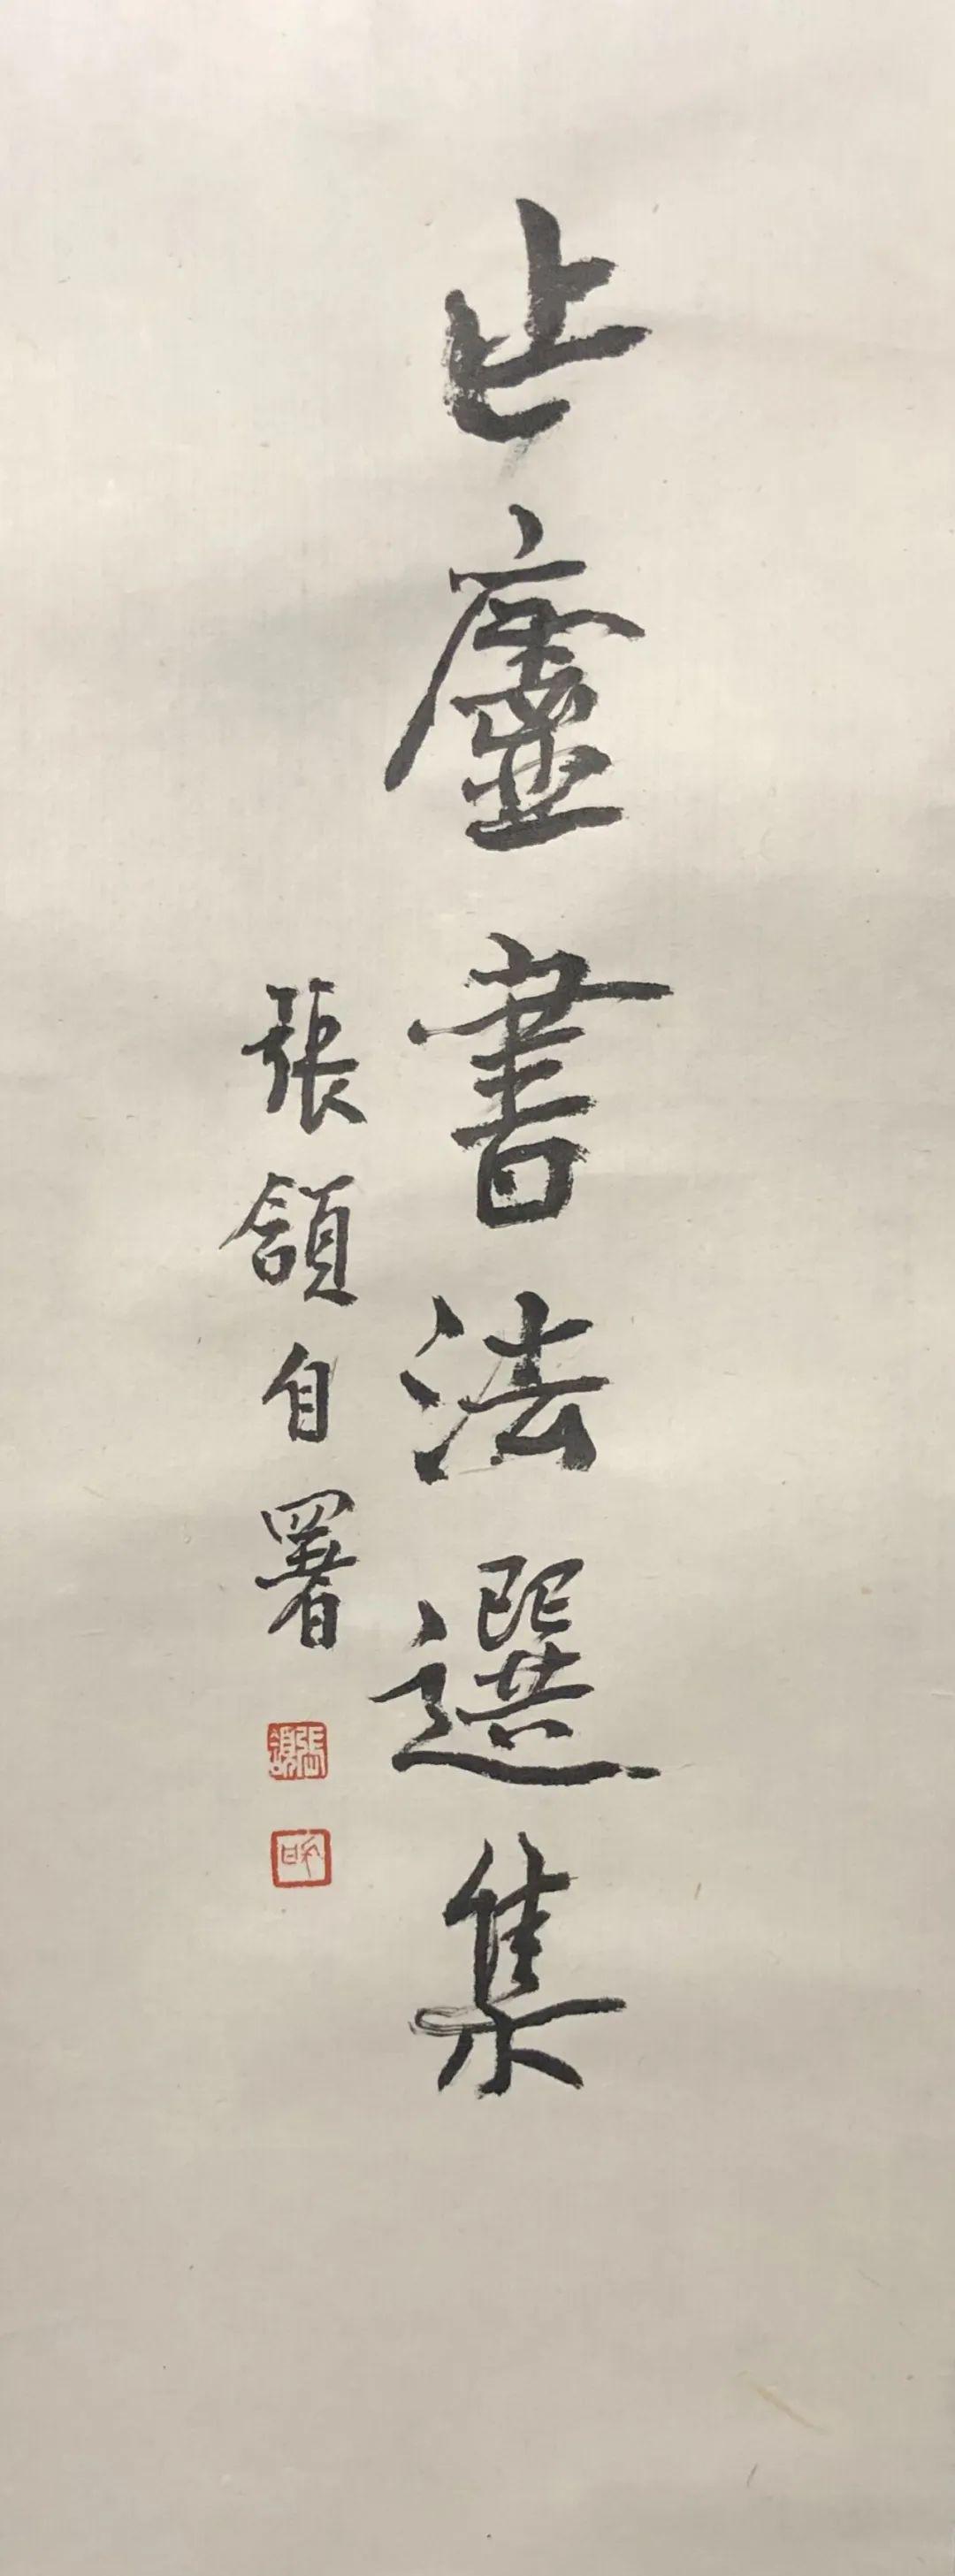 乍廬書法選集
張頷自署
張頷